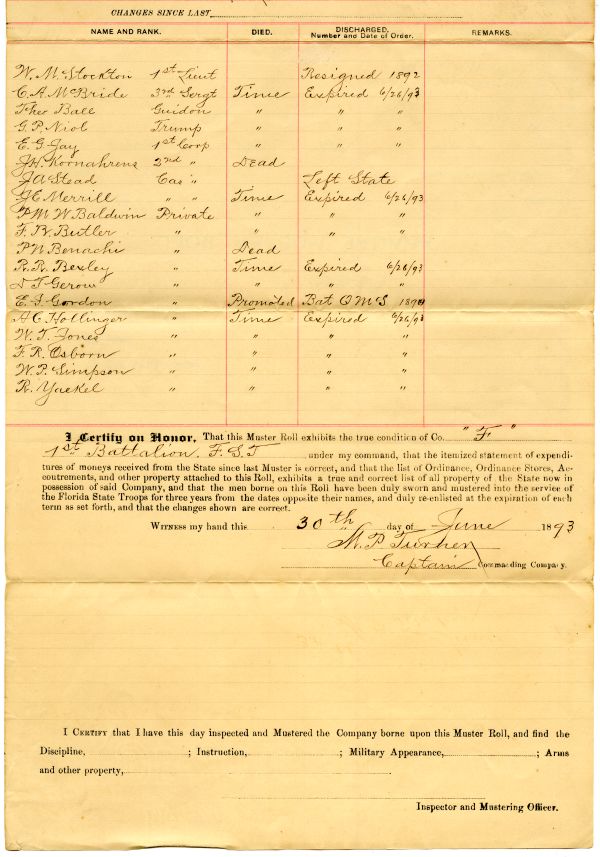 CHANGES SINCE LAST
NAME AND RANK. DIED. DISCHARGED. Number and Date of Order. REMARKS.
W. M. Stockton 1st Lieut Resigned 1892
C. A. McBride 3rd Sergt Time Expired 6/26/93
Theo Ball Guidon " " "
G. P. Niol Trump " " "
E. G. Jay 1st Corp " " "
J. H. Kornahrens 2nd " Dead
J A Stead Cas " Left State
J E Merrill " " Time Expired 6/26/93
P M W Baldwin Private " " "
F. B. Butler " " " "
P N Benachi " Dead
R. R. Bexley " Time Expired 6/26/93
D T Gerow " " " "
E. F. Gordon " Promoted Bat Q M S 1892
A C. Hollinger " Time Expired 6/26/93
W. T. Jones " " " "
F. R. Osborn " " " "
W. P. Simpson " " " "
R. Yaekel " " " "
I Certify on Honor, That this Muster Roll exhibits the true condition of Co. "F"
1st Battalion F. S. T under my command, that the itemized statement of expendi-
tures of moneys received from the State since last Muster is correct, and that the list of Ordinance, Ordinance Stores, Ac-
coutrements, and other property attached to this Roll, exhibits a true and correct list of all property of the State now in
possession of said Company, and that the men borne on this Roll have been duly sworn and mustered into the service of
the Florida State Troops for three years from the dates opposite their names, and duly re-enlisted at the expiration of each
term as set forth, and that the changes shown are correct.
WITNESS my hand this 30th day of June 1893
M. P. Turner
Captain Commanding Company.
I CERTIFY that I have this day inspected and Mustered the Company borne upon this Muster Roll, and find the
Discipline, ; Instruction, ; Military Appearance, ; Arms
and other property,
Inspector and Mustering Officer.